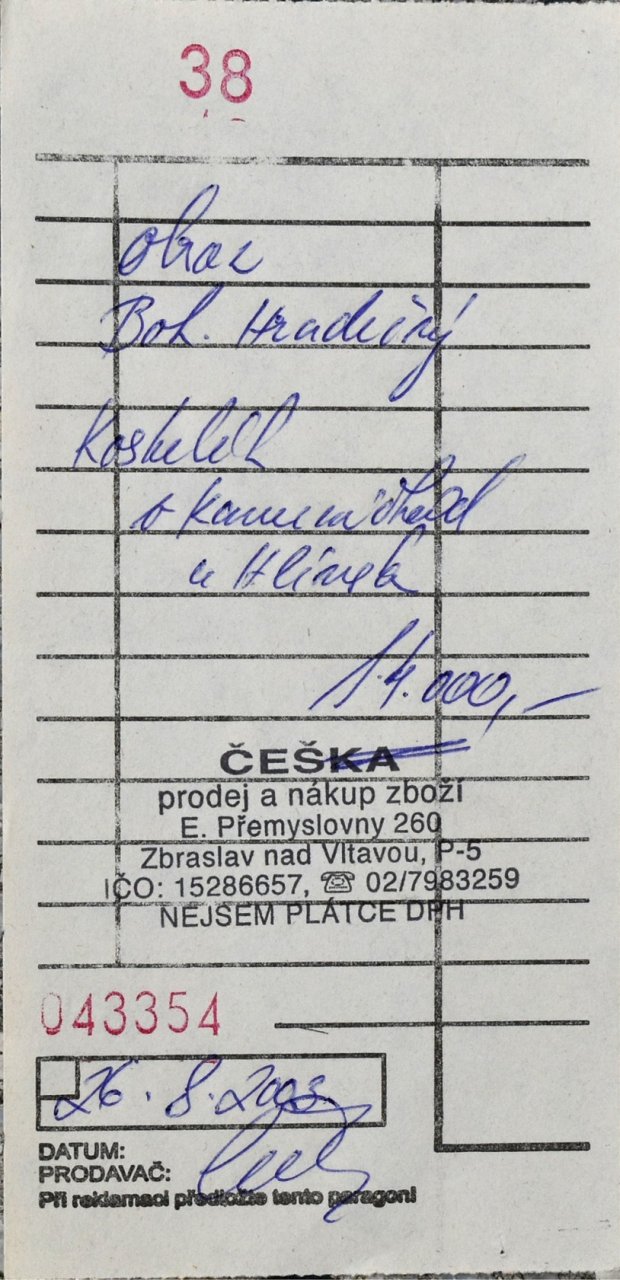 38
obraz
Boh. Hradečný
Kostelík
v
u Hlinska
14.000,-
ČEŠKA
prodej a nákup zboží
E. Přemyslovny 260
Zbraslav nad Vltavou, P-5
IČO: 15286657, ☏ 02/7983259
NEJSEM PLÁTCE DPH
043354
26. 8. 2003
DATUM:
PRODAVAČ:
Při reklamaci předložte tento paragon!